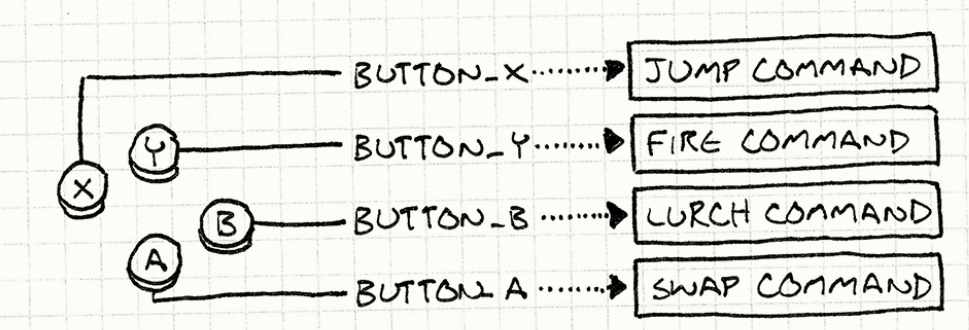 BUTTON_X JUMP COMMAND
Y
BUTTON_Y FIRE COMMAND
X
B
BUTTON_B LURCH COMMAND
A
BUTTON_A SWAP COMMAND